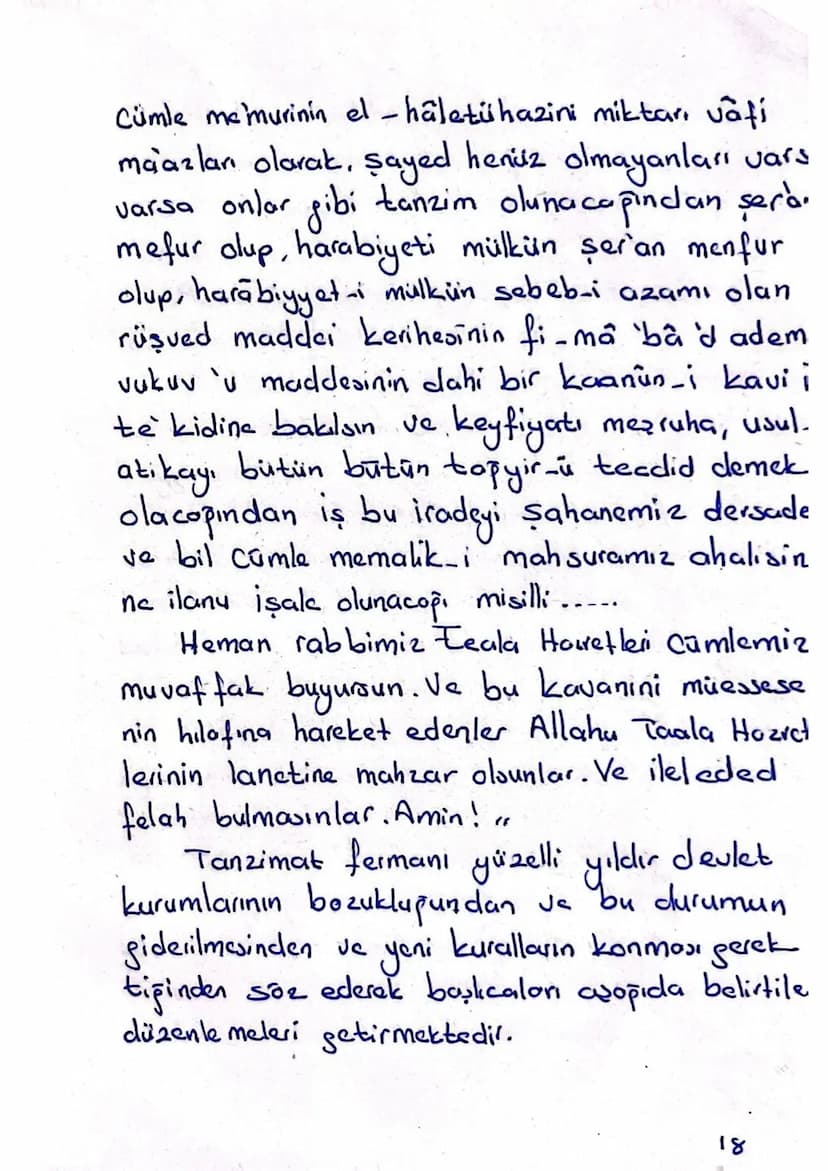 Cümle me'murinin el - hâletühazini miktarı vâfi
ma'azları olarak, şayed henüz olmayanları vars
varsa onlar gibi tanzim olunacağından şer'a.
mefur olup, harabiyeti mülkün şer'an menfur
olup, harābiyyet-i mülkün sebeb-i azamı olan
rüşved maddei kerihesīnin fi-mâ 'bâ'd adem
vukuv 'u maddesinin dahi bir kaanûn-i kavi i
te'kidine bakılsın ve keyfiyatı meşruha, usul-
atikayı bütün bütün topyir-ü tecdid demek
olacağından iş bu iradeyi şahanemiz dersade
ve bil cümle memalik-i mahsuramız ahalisin
ne ilanu işale olunacağı misilli .....
Heman rabbimiz Teala Hazretleri Cümlemiz
muvaffak buyursun. Ve bu kavanini müessese
nin hılafına hareket edenler Allahu Taala Hazret
lerinin lanetine mahzar olsunlar. Ve ileleded
felah bulmasınlar. Amin! "
Tanzimat fermanı yüzelli yıldır devlet
kurumlarının bozukluğundan ve bu durumun
giderilmesinden ve yeni kuralların konması gerek
tiğinden söz ederek başlıcaları aşağıda belirtile
düzenlemeleri getirmektedir.
18